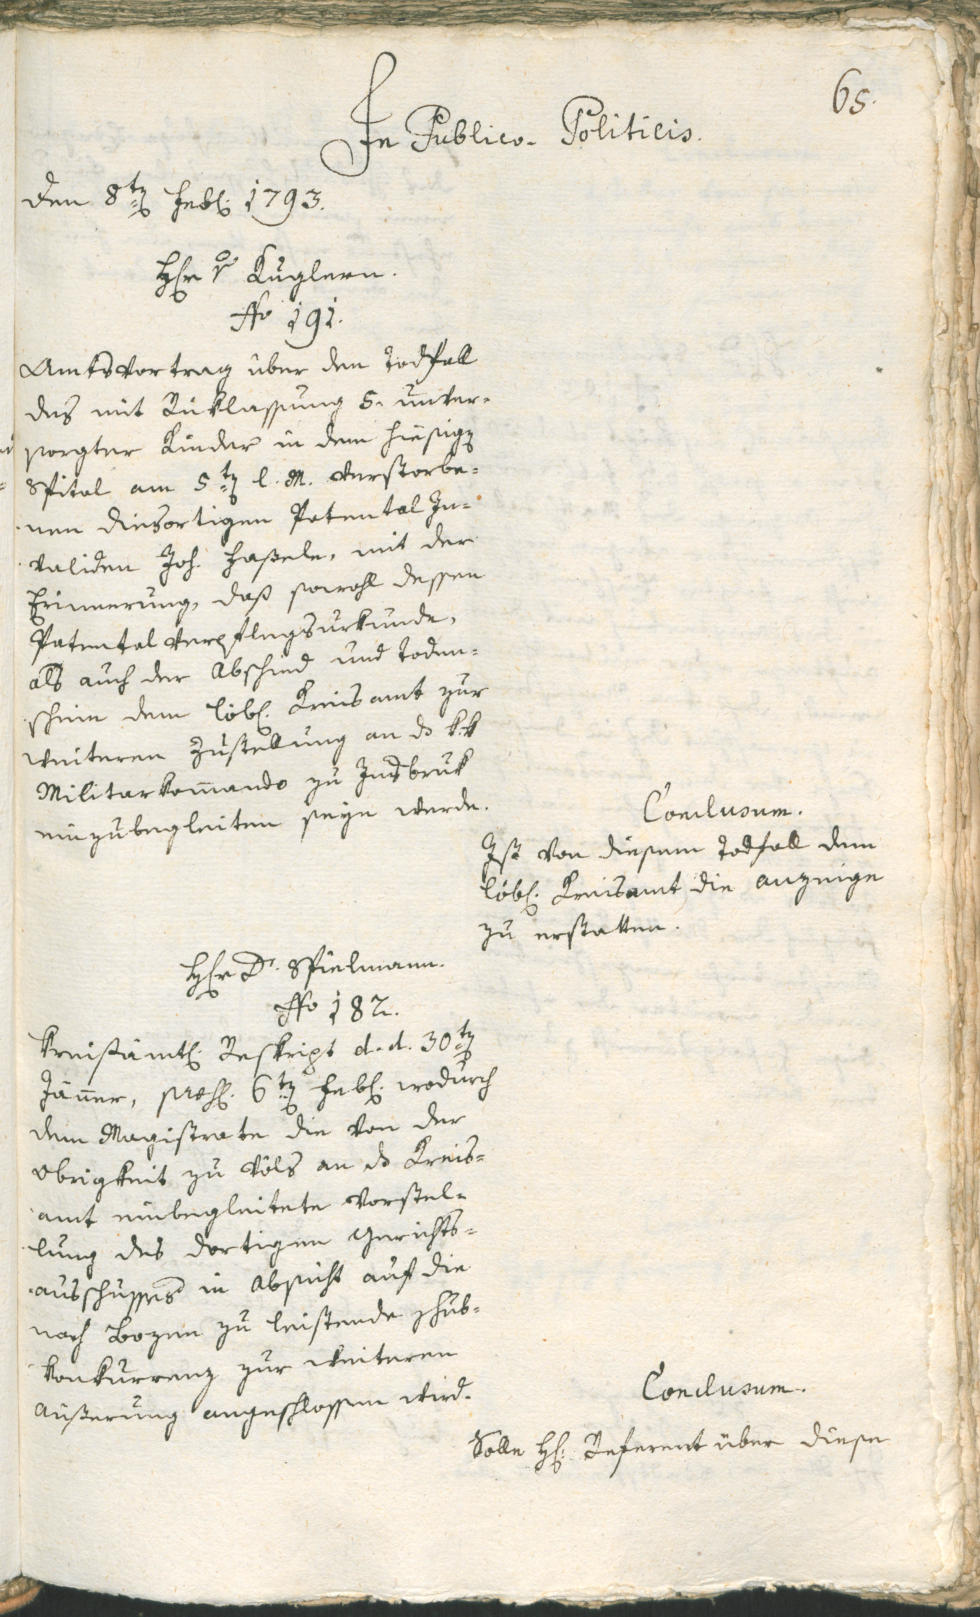 65.
In Publico-Politicis.
Den 8tn Febl. 1793.
Hr v Kuglern.
No 191.
Amtsvortrag über den Todfall
des mit Rüklassung 5. unver-
sorgter Kinder in dem hiesign
Spital am 5tn l. M. verstorbe-
nen diesortigen Patental In-
validen Joh. Haßele, mit der
Erinnerung, daß sowohl dessen
Patental Verpflegsurkunde,
als auch der Abschied und Toden-
schein dem löbl. Kreisamt zur
weiteren Zustellung an do k: k
Militarkom̄ando zu Insbruk
einzubegleiten seyn werde.
Conclusum.
Ist von diesem Todfall dem
löbl. Kreisamt die anzeige
zu erstatten.
Hr Dr. Spielmann.
No 182.
Kreisämtl. Reskript d. d. 30tn
Jäner, præs. 6tn Febl. wodurch
dem Magistrate die von der
Obrigkeit zu Völs an do Kreis-
amt einbegleitete Vorstel-
lung des dortigen Gerichts-
ausschusses in Absicht auf die
nach Bozen zu leistende Schub-
konkurrenz zur weiteren
Äußerung angeschlossen wird.
Conclusum.
Solle H. Referent über diese